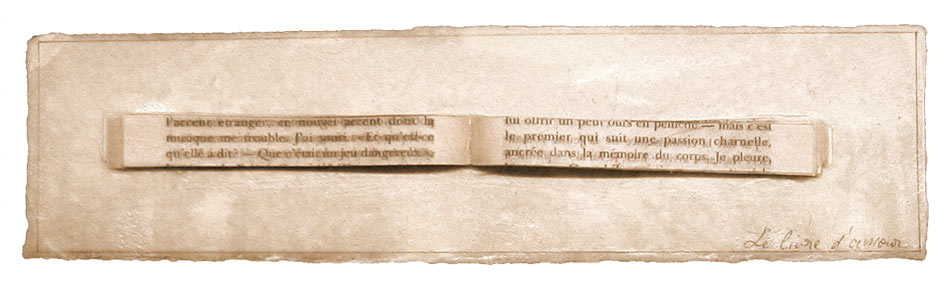 l'accent étranger, ce nougei accent dont la
musique me trouble. J'ai souri. «Et qu'est-ce
qu'elle a dit? — Que c'était un jeu dangereux,
lui offrir un petit ours en peluche — mais c'est
le premier qui suit une passion charnelle,
ancrée dans la mémoire du corps. Je pleure,
Le livre d'amour